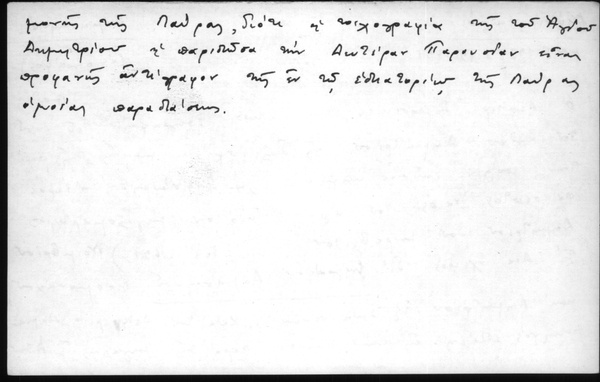 μονῆς τῆς Λαύρας, διότι ἡ τοιχογραφία τῆς τοῦ Ἁγίου
Δημητρίου ἡ παριστῶσα τὴν Δευτέραν Παρουσίαν εἶναι
προφανὴς ἀντίγραφον τῆς ἐν τῷ τῆς Λαύρας
ὁμοίας παραστάσεως.